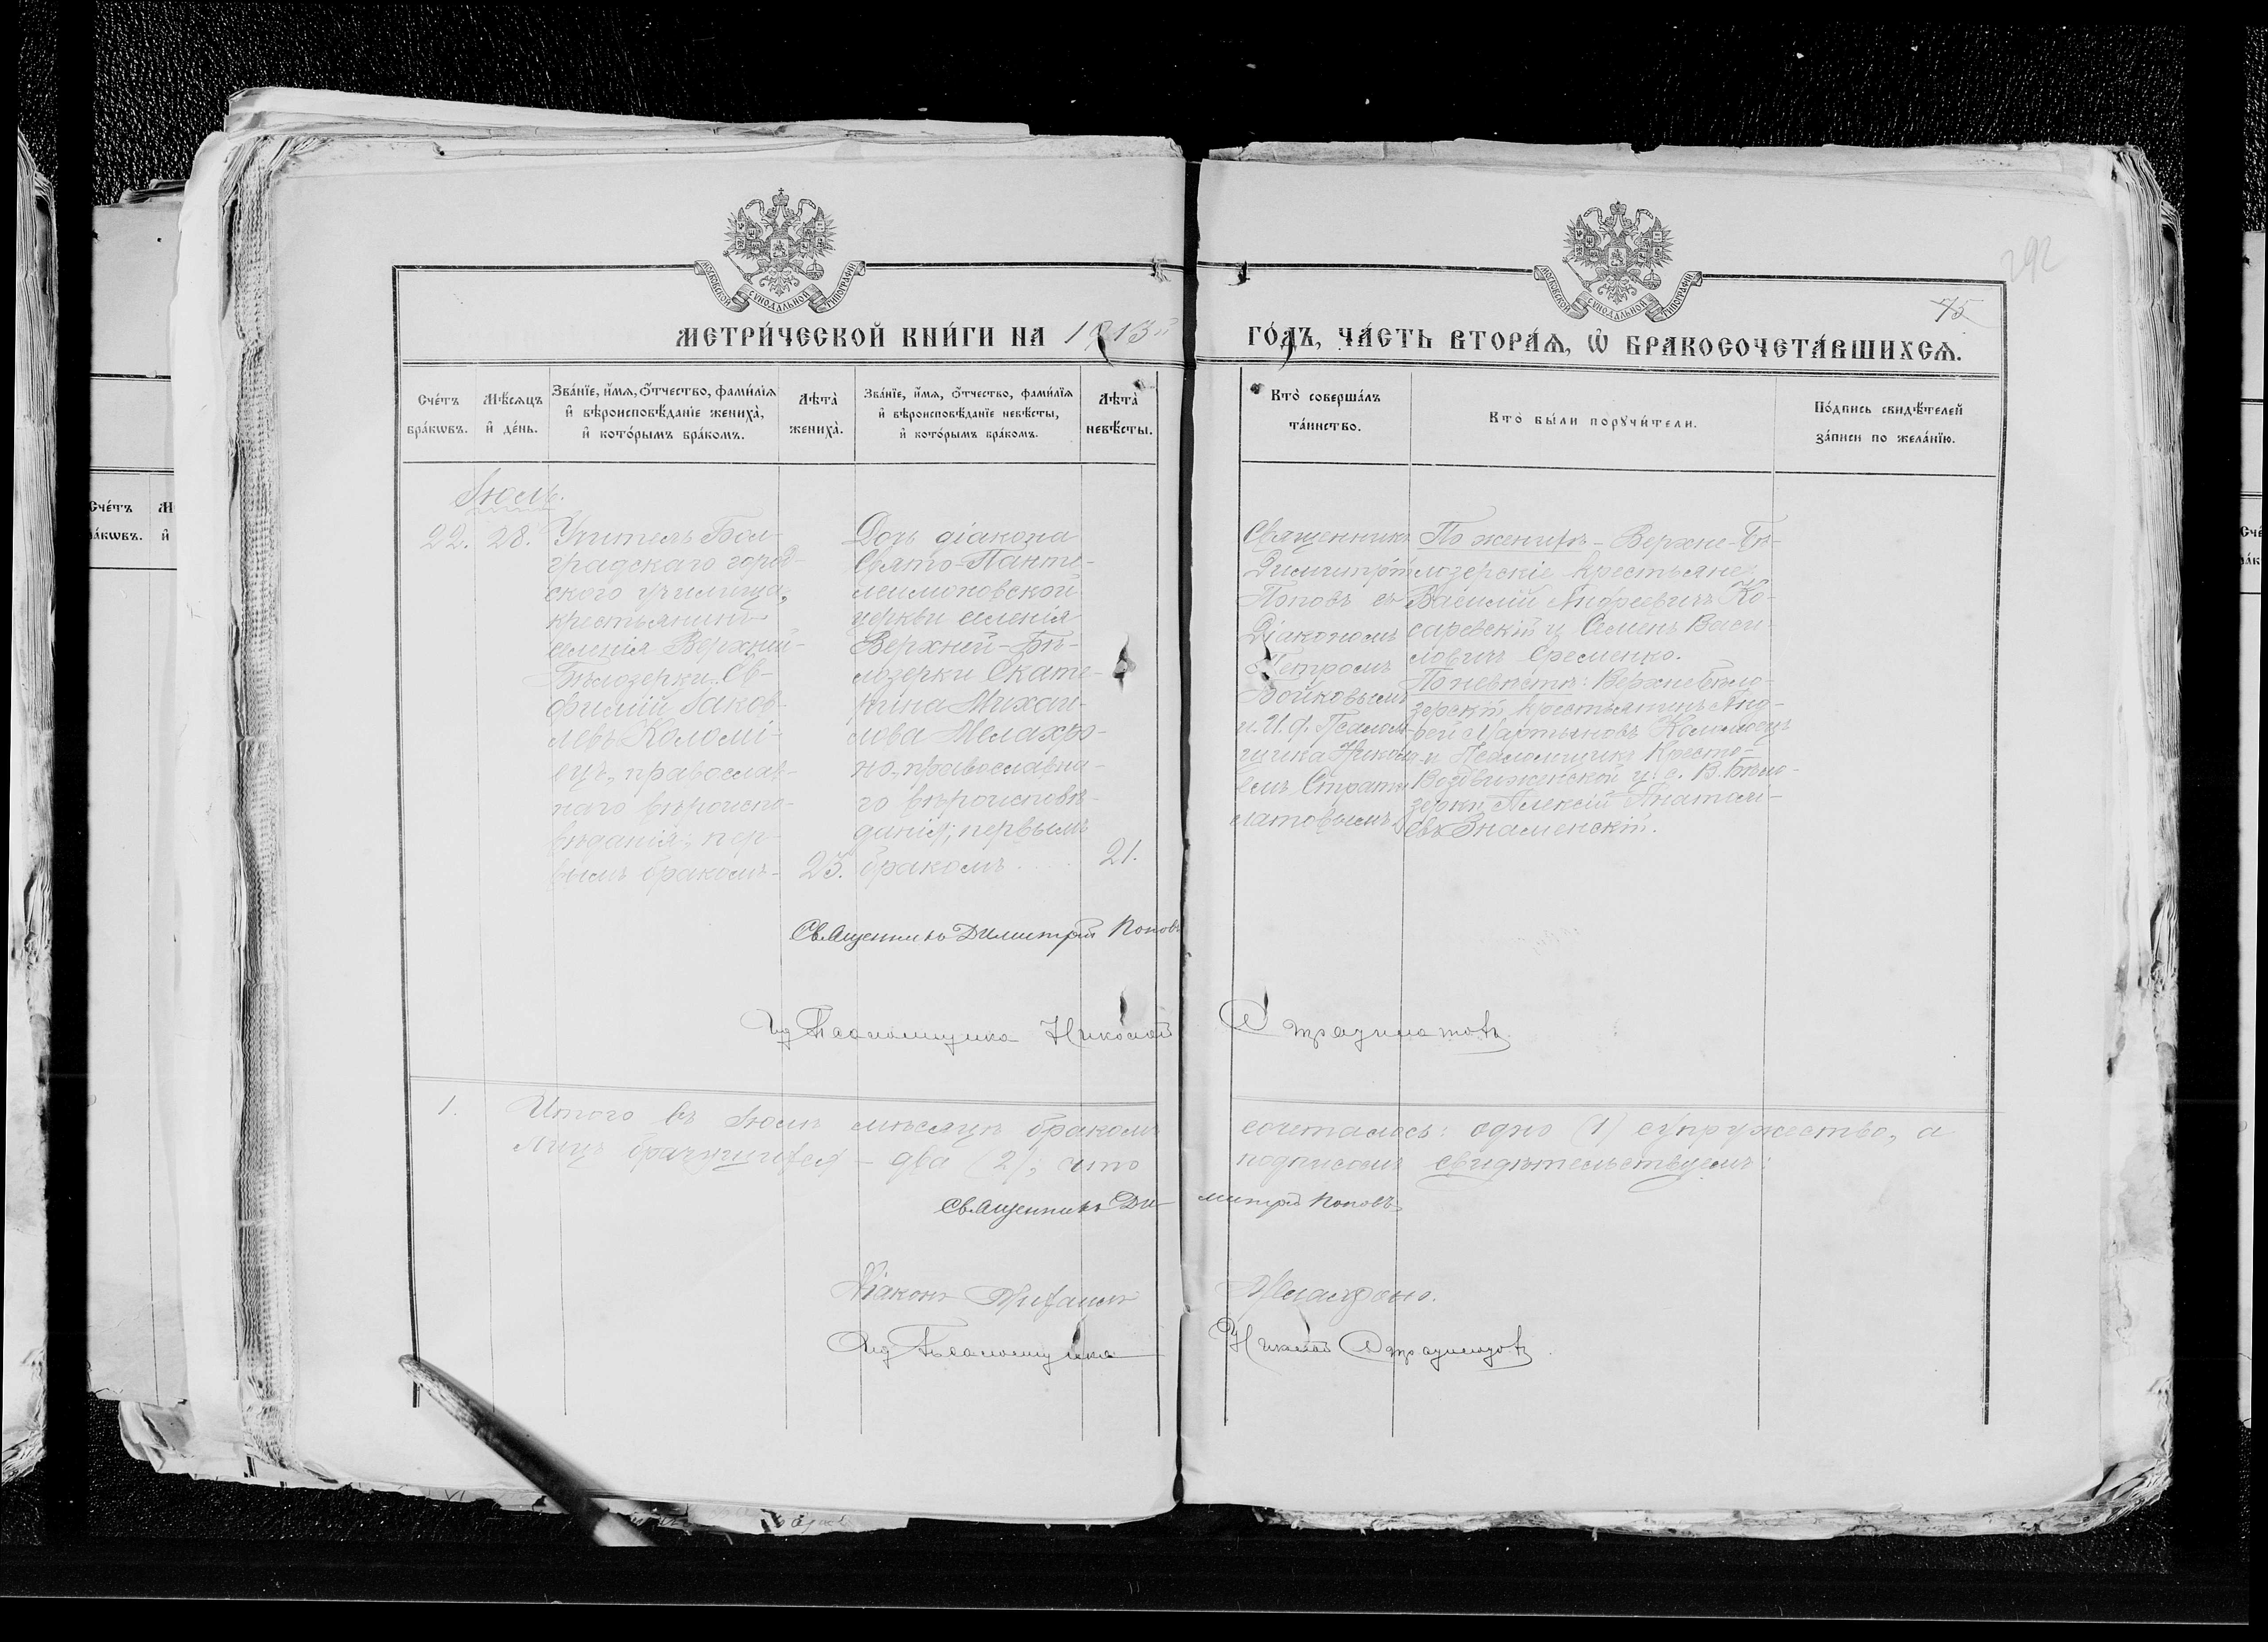 МОСКОВСКОЙ СУНОДАЛЬНОЙ ТИПОГРАФІИ
МОСКОВСКОЙ СУНОДАЛЬНОЙ ТИПОГРАФІИ
292
75
МЕТРИ́ЧЕСКОЙ КНИ́ГИ НА 1913й
ГО́ДЪ, ЧА́СТЬ ВТОРА́Ѧ, Ѡ҆ БРАКОСОЧЕТА́ВШИХСѦ.
Сче́тъ бра́кѡвъ.
Мѣ́сѧцъ и҆ де́нь.
Зва́нїе, и҆́мѧ, ѻ҆́тчество, фами́лїѧ
и҆ вѣроисповѣ́данїе жениха̀,
и҆ кото́рымъ бра́комъ.
Лѣта̀ жениха̀.
Зва́нїе, и҆́мѧ, ѻ҆́тчество, фами́лїѧ
и҆ вѣроисповѣ́данїе невѣ́сты,
и҆ кото́рымъ бра́комъ.
Лѣта̀ невѣ́сты.
Кто̀ соверша́лъ
та́инство.
Кто̀ бы́ли порꙋчи́тели.
По́дпись свидѣ́телей
за́писи по жела́нїю.
Іюль.
22. 28.
Учитель Бол-
градскаго город-
ского училища,
крестьянинъ
селенія Верхней-
Бѣлозерки Ев-
фимій Іаков-
левъ Коломі-
ецъ, православ-
наго вѣроиспо-
вѣданія; пер-
вымъ бракомъ-
25.
Дочь діакона
Свято-Панте-
леимоновской
церкви селенія
Верхней-Бѣ-
лозерки Екате-
рина Михаи-
лова Мелахро-
но, православна-
го вѣроисповѣ-
данія; первымъ
бракомъ.
21.
Священникъ
Димитрій
Поповъ съ
Діакономъ
Петромъ
Войковымъ
и. И. д. Псалом-
щика Никола-
емъ Страти-
латовымъ
По женихѣ - Верхне-Бѣ-
лозерскіе крестьяне
Василій Андреевичъ Ко-
саревскій и Семенъ Васи-
льевичъ Еременко.
По невѣстѣ: Верхнебѣло-
зерскій крестьянинъ Анд-
рей Мартыновъ Коломіецъ
и Псаломщикъ Кресто-
Воздвиженской ц. с. В. Бѣло-
зерки Алексій Анатолі-
евъ Знаменскій.
Священникъ Димитрій Поповъ
Ид Псаломщика Николай Стратилатовъ
1. Итого въ Іюлѣ мѣсяцѣ бракомъ сочеталось: одно (1) супружество, а
лицъ брачущихся - два (2); что подписомъ свидѣтельствуемъ:
Священникъ Димитрій Поповъ
Діаконъ Михаилъ Мелахроно.
Ид Псаломщика Николай Стратилатовъ
Сче́тъ
бра́кѡвъ.